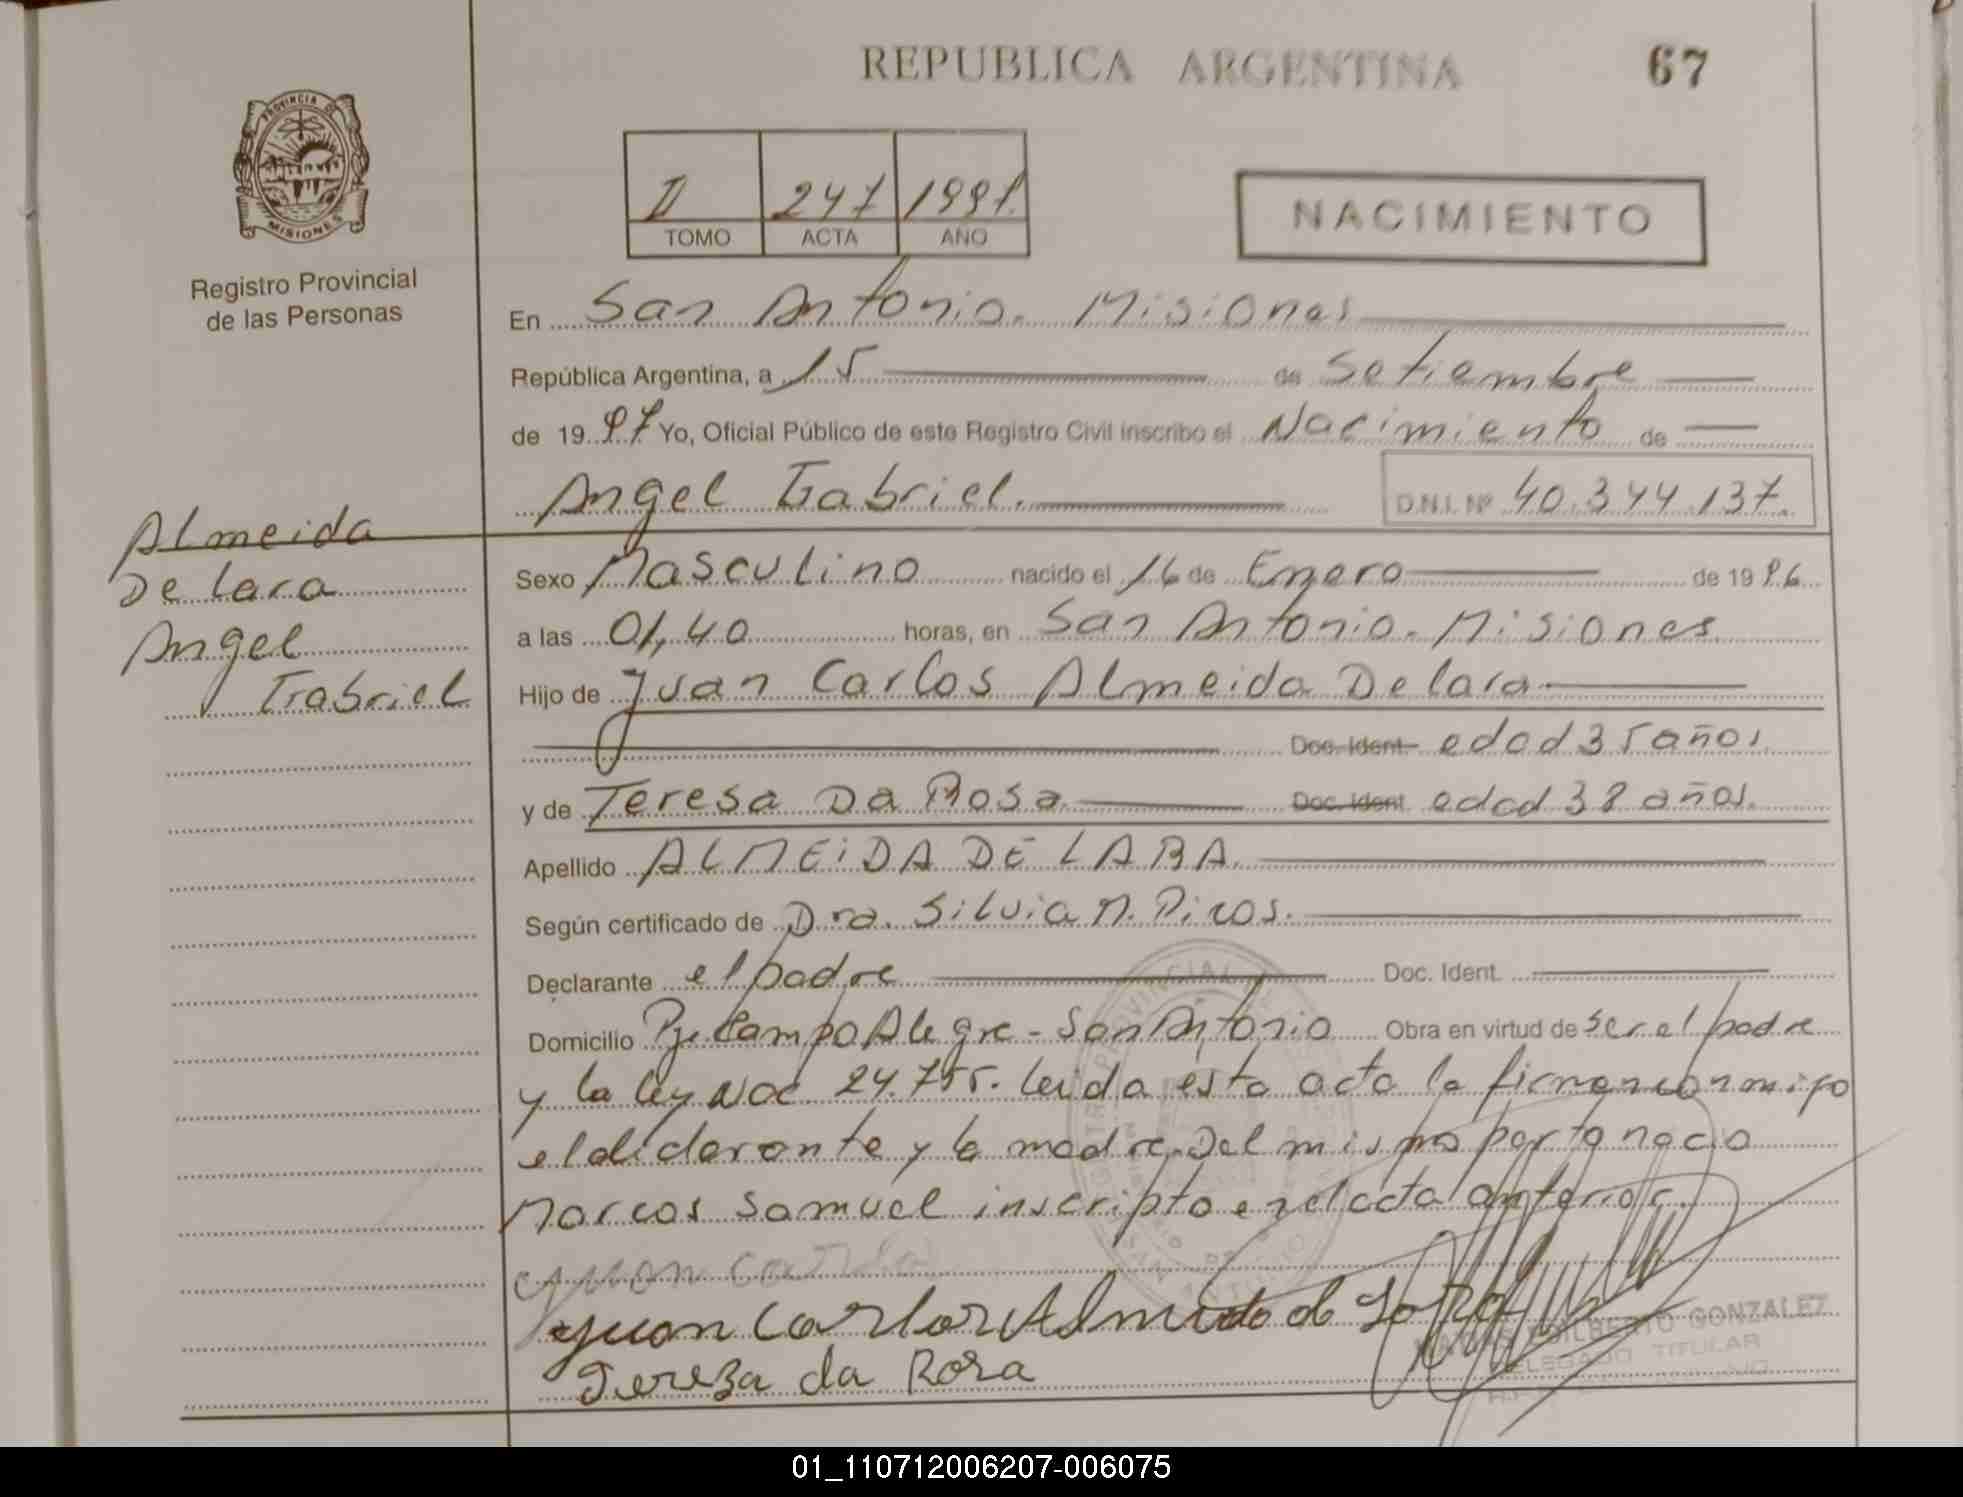 REPUBLICA ARGENTINA 67
PROVINCIA DE
MISIONES
Registro Provincial
de las Personas
II 247 1997.
TOMO ACTA AÑO
NACIMIENTO
En San Antonio. Misiones
República Argentina, a 15 de Setiembre
de 19 97 Yo, Oficial Público de este Registro Civil inscribo el Nacimiento de
Angel Gabriel. D.N.I. Nº 40.344.137.
Almeida
De Lara
Angel
Gabriel
Sexo Masculino nacido el 16 de Enero de 19 96
a las 01,40 horas, en San Antonio. Misiones
Hijo de Juan Carlos Almeida De Lara
Doc. Ident edad 35 años
y de Teresa Da Rosa Doc. Ident edad 38 años.
Apellido ALMEIDA DE LARA.
Según certificado de Dra. Silvia M. Picos.
Declarante el padre Doc. Ident.
Domicilio Pje Campo Alegre - San Antonio Obra en virtud de ser el padre
y la ley Nac 24.755. leida esta acta la firman conmigo
el declarante y la madre. Del mismo parto nacio
Marcos Samuel inscripto en el acta anterior.
Juan Carlos
Juan Carlos Almeida de Lara
GILBERTO GONZALEZ
DELEGADO TITULAR
Tereza da Rosa
01_110712006207-006075